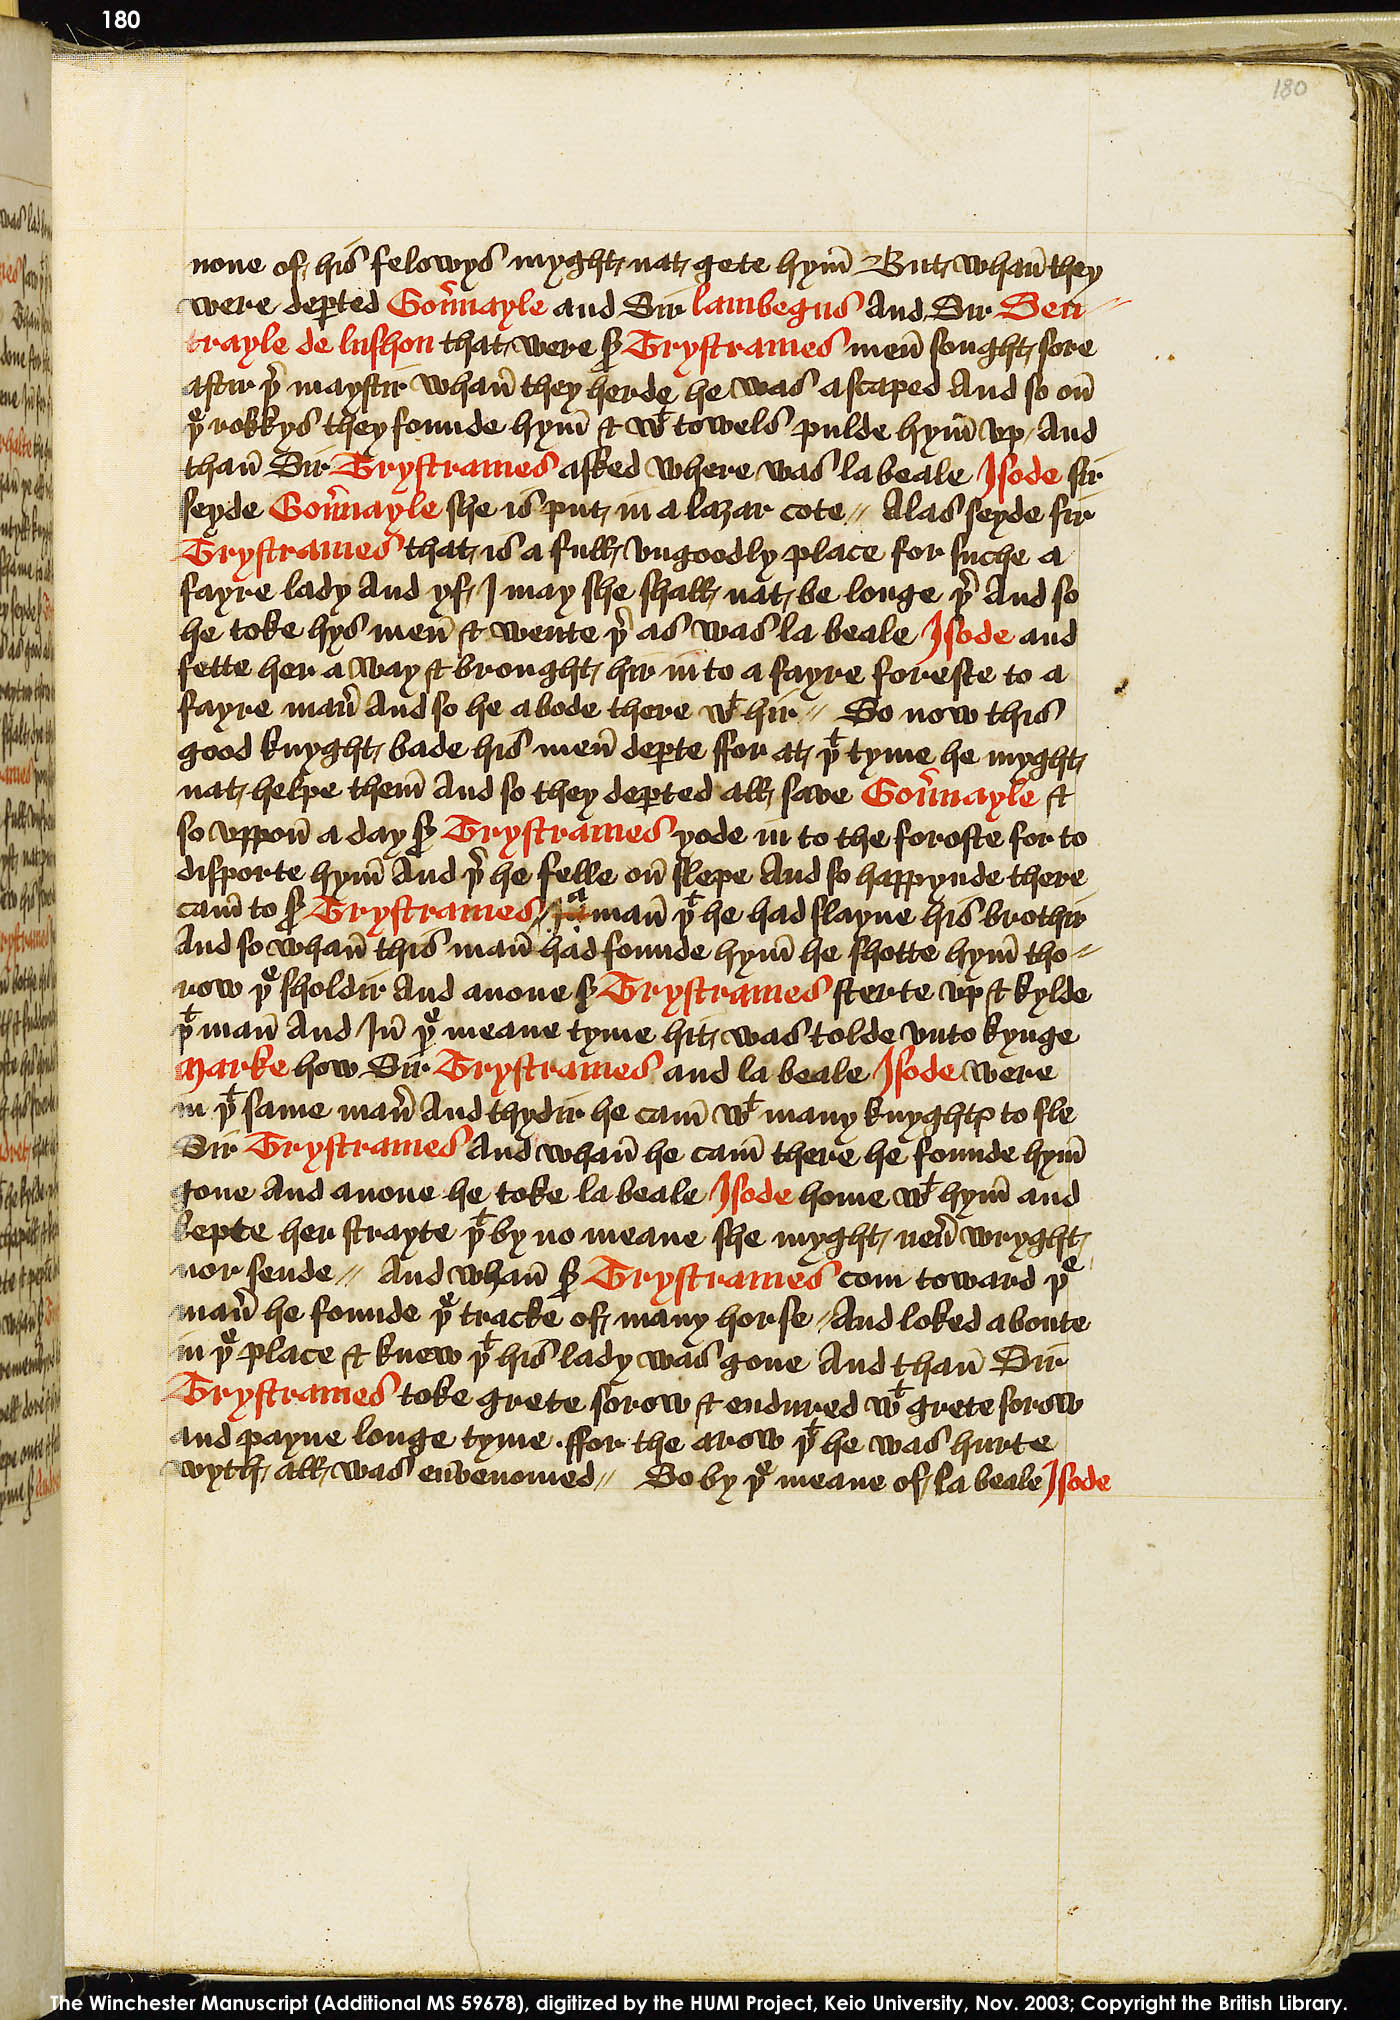 180
180
none of his felowys myght nat gete hym̄ But whan̄ they
were dep̱ted Gou̾nayle and Sir lambegus And Sir Sen
trayle de lushon that were sʳ Trystrames men̄ sought sore
aftir þ̾ maystir whan̄ they herde he was ascaped And so on̄
þᵉ rokkys they founde hym̄ & wᵗ towels pulde hym̄ vp And
than̄ Sir Trystrames asked where was la beale Isode sir
seyde Gou̾nayle she is put in a lazar cote // Alas seyde sir
Trystrames that is a full vngoodly place for suche a
fayre lady And yf I may she shall nat be longe þ̾ And so
he toke hys men̄ & wente þ̾ as was la beale Isode and
fette her a way & brought hir in to a fayre foreste to a
fayre man̾ And so he abode there wᵗ hir // So now this
good knyght bade his men̄ dep̱te ffor at þᵗ tyme he myght
nat helpe them̄ And so they dep̱ted all save Gou̾nayle &
so vppon̄ a day sʳ Trystrames yode in to the foreste for to
disporte hym̄ And þ̾ he felle on̄ slepe And so happynde there
cam̄ to sʳ Trystrames // a man̄ þᵗ he had slayne his brothir
And so whan̄ this man̄ had founde hym̄ he shotte hym̄ tho=
row þᵉ sholdir And anone sʳ Trystrames sterte vp & kylde
þᵗ man̄ And In̄ þᵉ meane tyme hit was tolde vnto kynge
Marke how Sir Trystrames and la beale Isode were
in þᵗ same man̾ And thydir he cam̄ wᵗ many knyghtꝭ to sle
Sir Trystrames And whan̄ he cam̄ there he founde hym̄
gone And anone he toke la beale Isode home wᵗ hym̄ and
kepte her strayte þᵗ by no meane she myght neu̾ wryght
nor sende // And whan̄ sʳ Trystrames com toward þᵉ
man̾ he founde þᵉ tracke of many horse / And loked aboute
in þᵉ place & knew þᵗ his lady was gone And than̄ Sir
Trystrames toke grete sorow & endured wᵗ grete sorow
and payne longe tyme . ffor the arow þᵗ he was hurte
wyth all was en̄venomed // So by þᵉ meane of la beale Isode
The Winchester Manuscript (Additional MS 59678), digitized by the HUMI Project, Keio University, Nov. 2003; Copyright the British Library.